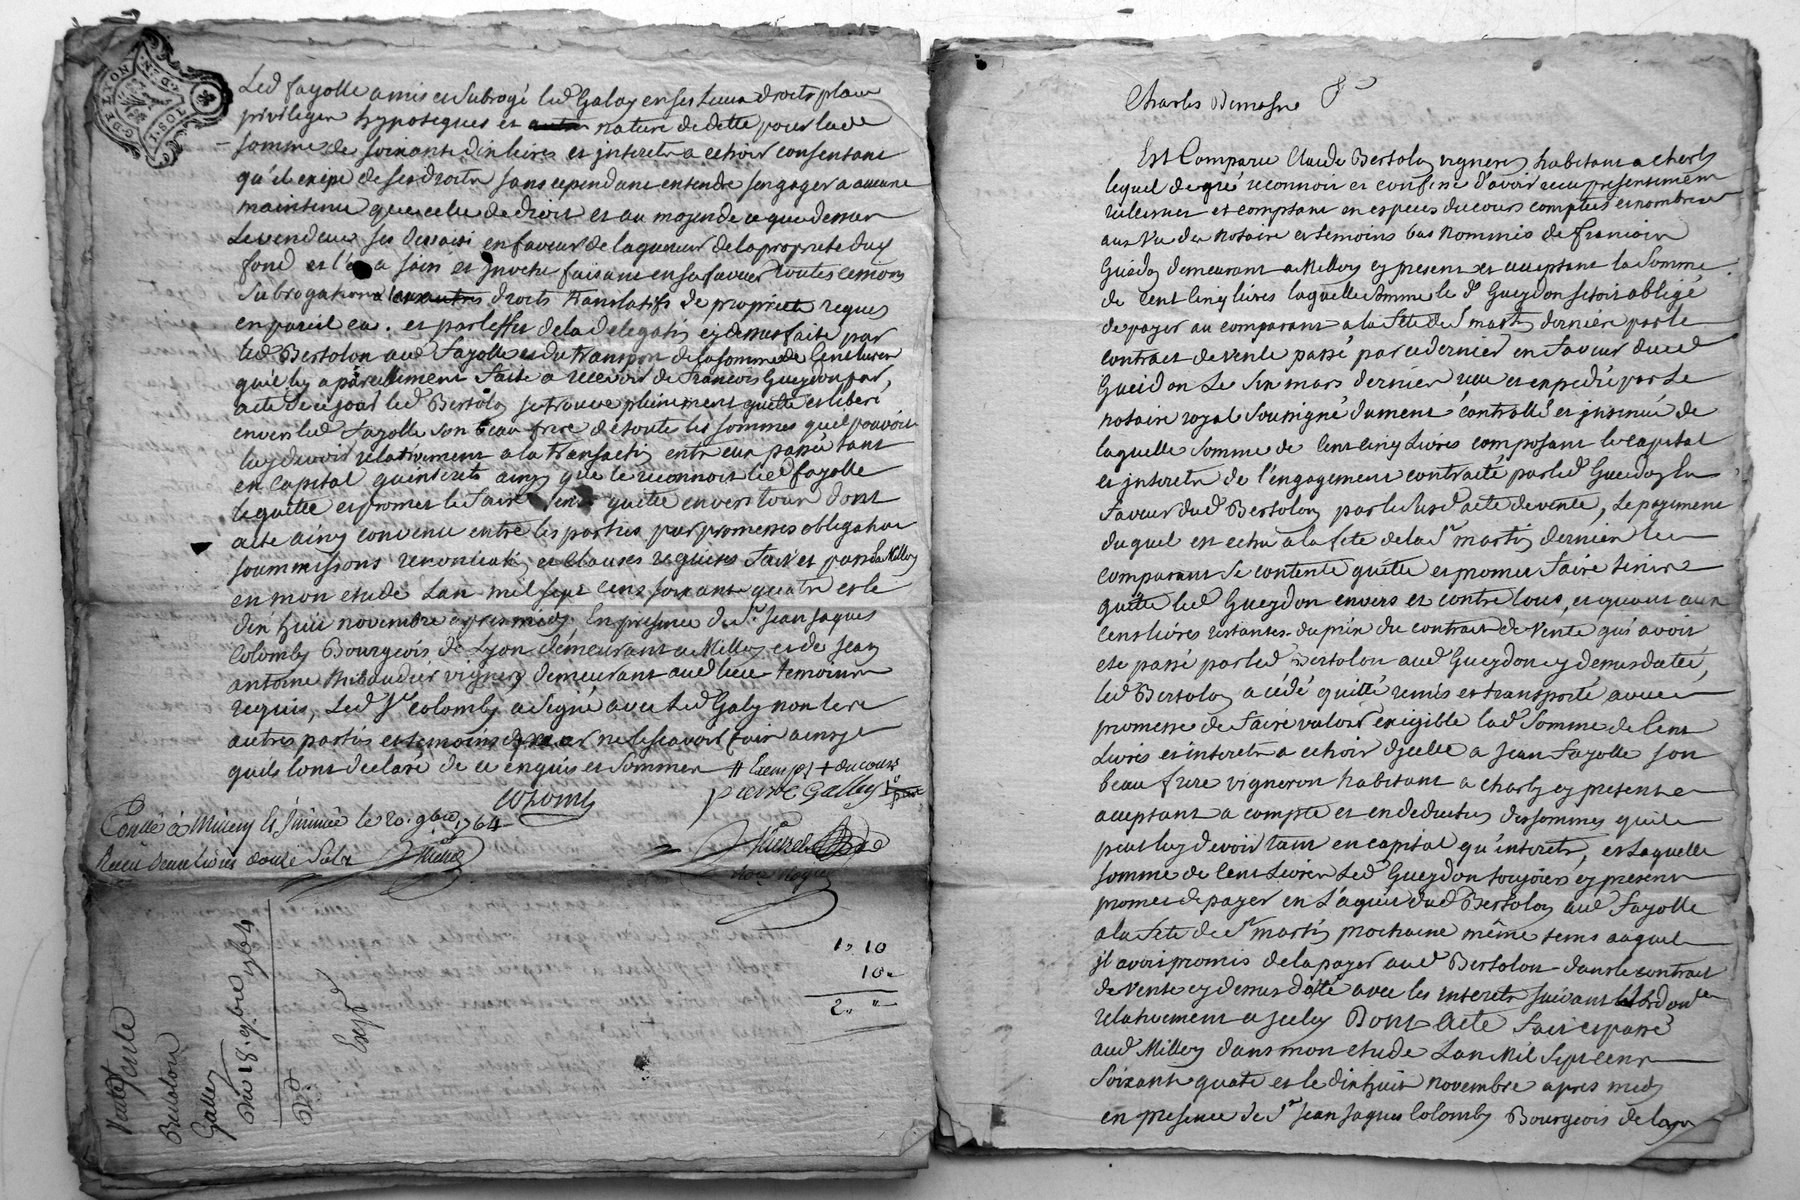 G. DE LYON
Led fayolle a mis et subrogé led Galay en ses lieux droits place
privileges hypoteques et nature de dette pour lade
somme de soixante dix livres et interets a echoir consentant
qu'il exige de ses droits sans cependant entendre sengager a aucune
maintenue que celle de droit et au moyen de ce que dessus
Le vendeur ses dessaisi en faveur de laquereur de la proprieté dud
fond et l'en a saisi et faisant en sa faveur toutes cemions
subrogation droits translatifs de proprieté requis
en pareil cas. et par leffet de la delegation cy dessus faite par
led Bertolon aud fayolle et du transport de la somme de Cent livres
quil luy a pareillement faite a recevoir de francois Gueydon par
acte de ce jour led Bertolon se trouve pleinement quitte et liberé
envers led fayolle son beau frere de toutes les sommes quil pouvoit
luy devoir relativement a la transaction entr eux passée tant
en capital quinterets ainsy que le reconnoit led fayolle
le quitte et promet le faire tenir quitte envers tous dont
acte ainsy convenu entre les parties par promesses obligation
soummissions renonciation et clauses requises fait et passé a Millery
en mon etude Lan mil sept cens soixante quatre et le
dix huit novembre apres midy En presence de Sr Jean Jaques
Colomby Bourgeois de Lyon demeurant a Millery et de Jean
antoine thibaudier vigneron demeurant aud lieu temoins
requis, Led Sr Colomby a signé avec led Galey non les
autres parties et temoins pour ne le scavoir faire ainsy
quils lont declaré de ce enquis et sommés
Colomb
pierre Galley
Conllé à Millery et insinué le 20. 9bre 1764
Receu deux livres douze sols
1. 10
10
2. "
Vente
Bertolon
Galley
Du 18. 9bre 1764
Exp
Charles Demosne
Est Comparu Claude Bertolon vigneron habitant a Charly
lequel de gré reconnoit et confesse d'avoir receu presentement
reelement et comptant en especes du cours comptées et nombrées
aux vu des notaire et temoins bas nommés de francois
Guedon demeurant a Millery cy present et acceptant la Somme
de Cent Cinq livres laquelle somme le d Gueydon setoit obligé
de payer au comparant a la fete de St martin derniere par le
contract de vente passé par ce dernier en faveur dud
Gueidon Le Six mars dernier receu et expedié par Le
notaire royal Soussigné dument controllé et insinué de
laquelle Somme de Cent Cinq Livres composant le capital
et interets de l'engagement contracté par led Gueidon en
faveur dud Bertolon par le susd acte de vente, Le payement
duquel est echu a la fete de la St martin dernier le
comparant se contente quitte et promet faire tenir
quitte led Gueydon envers et contre tous, et quant aux
Cent livres restantes du prix du contract de vente qui avoit
eté passé par led Bertolon aud Gueydon cy dessus datté,
led Bertolon a cédé quitté remis et transporté avec
promesse de faire valoir exigible lad Somme de Cent
Livres et interets a echoir d'jcelle a Jean Fayolle son
beau frere vigneron habitant a charly cy present
acceptant a compte et en deduction des sommes quil
peut luy devoir tant en capital qu'interets, et Laquelle
somme de Cent Livres Led Gueydon toujours cy present
promet de payer en L'aquit dud Bertolon aud Fayolle
a la fete de St martin prochaine même tems auquel
jl avoit promis de la payer aud Bertolon dans le contract
de vente cy dessus datté avec les interets suivant Lordonce
relativement a jceluy Dont Acte fait et passé
aud Millery dans mon etude Lan Mil Sept Cens
Soixante quatre et le dix huit novembre apres midy
en presence de Sr Jean Jaques Colomby Bourgeois de Lyon